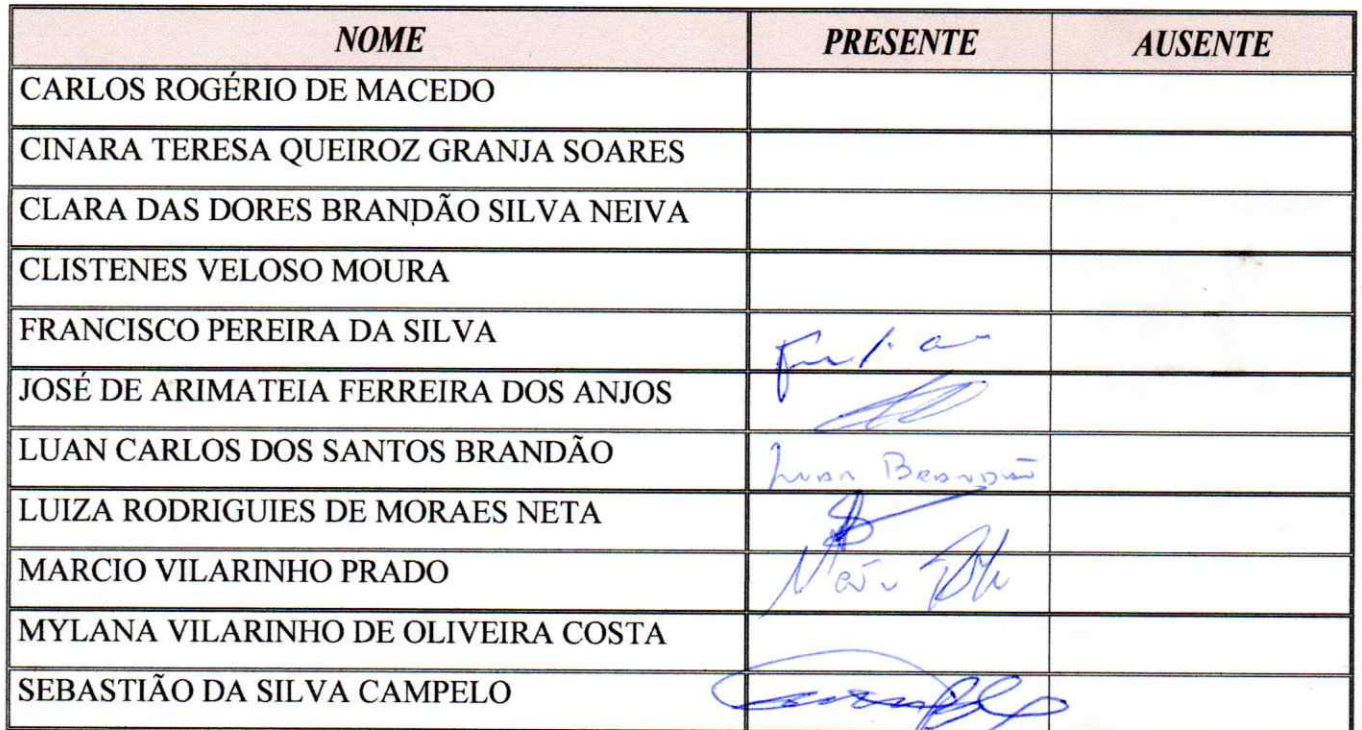 NOME PRESENTE AUSENTE
CARLOS ROGÉRIO DE MACEDO
CINARA TERESA QUEIROZ GRANJA SOARES
CLARA DAS DORES BRANDÃO SILVA NEIVA
CLISTENES VELOSO MOURA
FRANCISCO PEREIRA DA SILVA
JOSÉ DE ARIMATEIA FERREIRA DOS ANJOS
LUAN CARLOS DOS SANTOS BRANDÃO Luan Brandão
LUIZA RODRIGUIES DE MORAES NETA
MARCIO VILARINHO PRADO
MYLANA VILARINHO DE OLIVEIRA COSTA
SEBASTIÃO DA SILVA CAMPELO